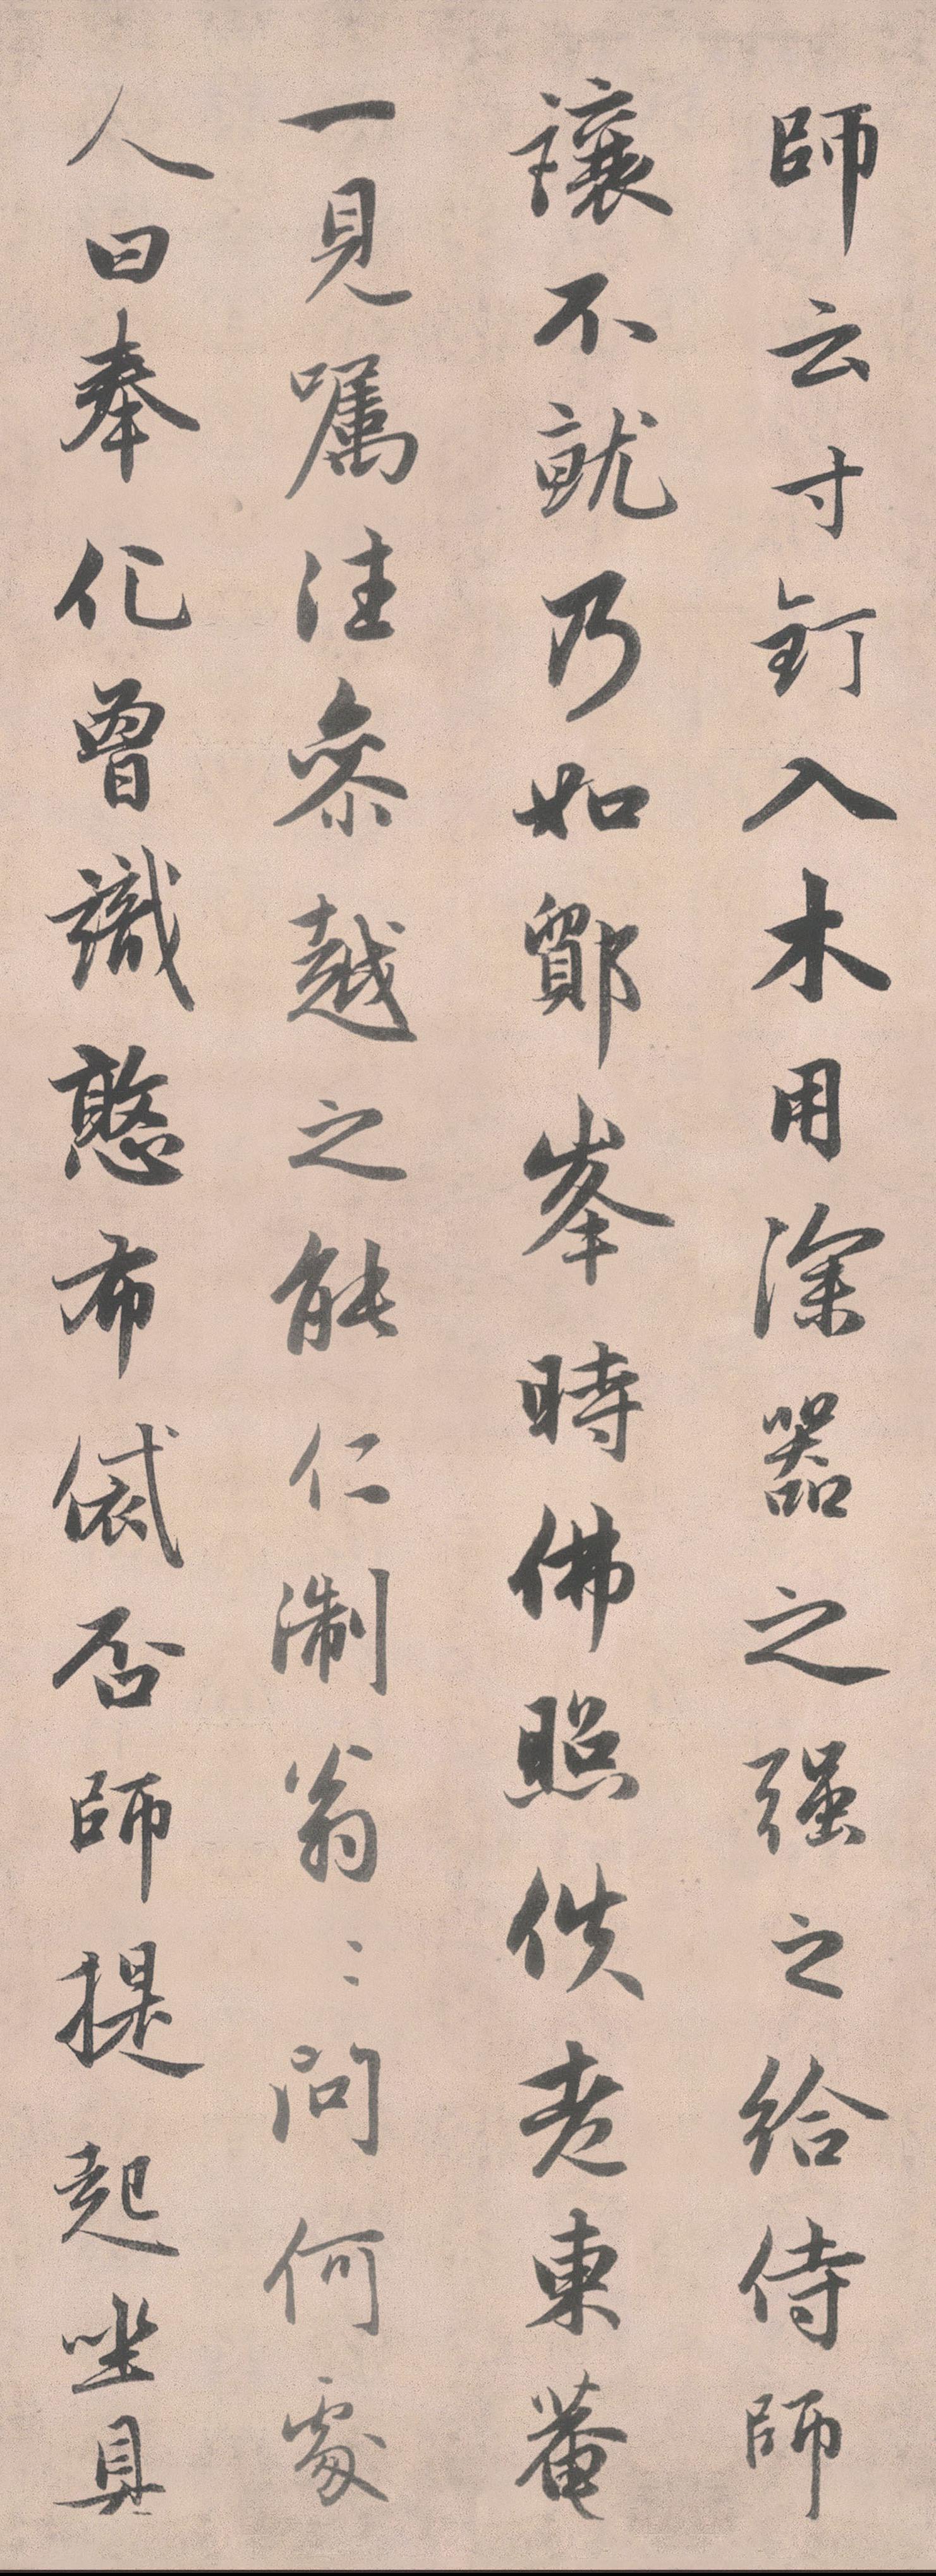 師云寸釘入木用深器之强之給侍師
讓不就乃如鄮峯時佛照佚老東菴
一見囑注參越之能仁淛翁〻問何處
人曰奉化曾識憨布袋否師提起坐具